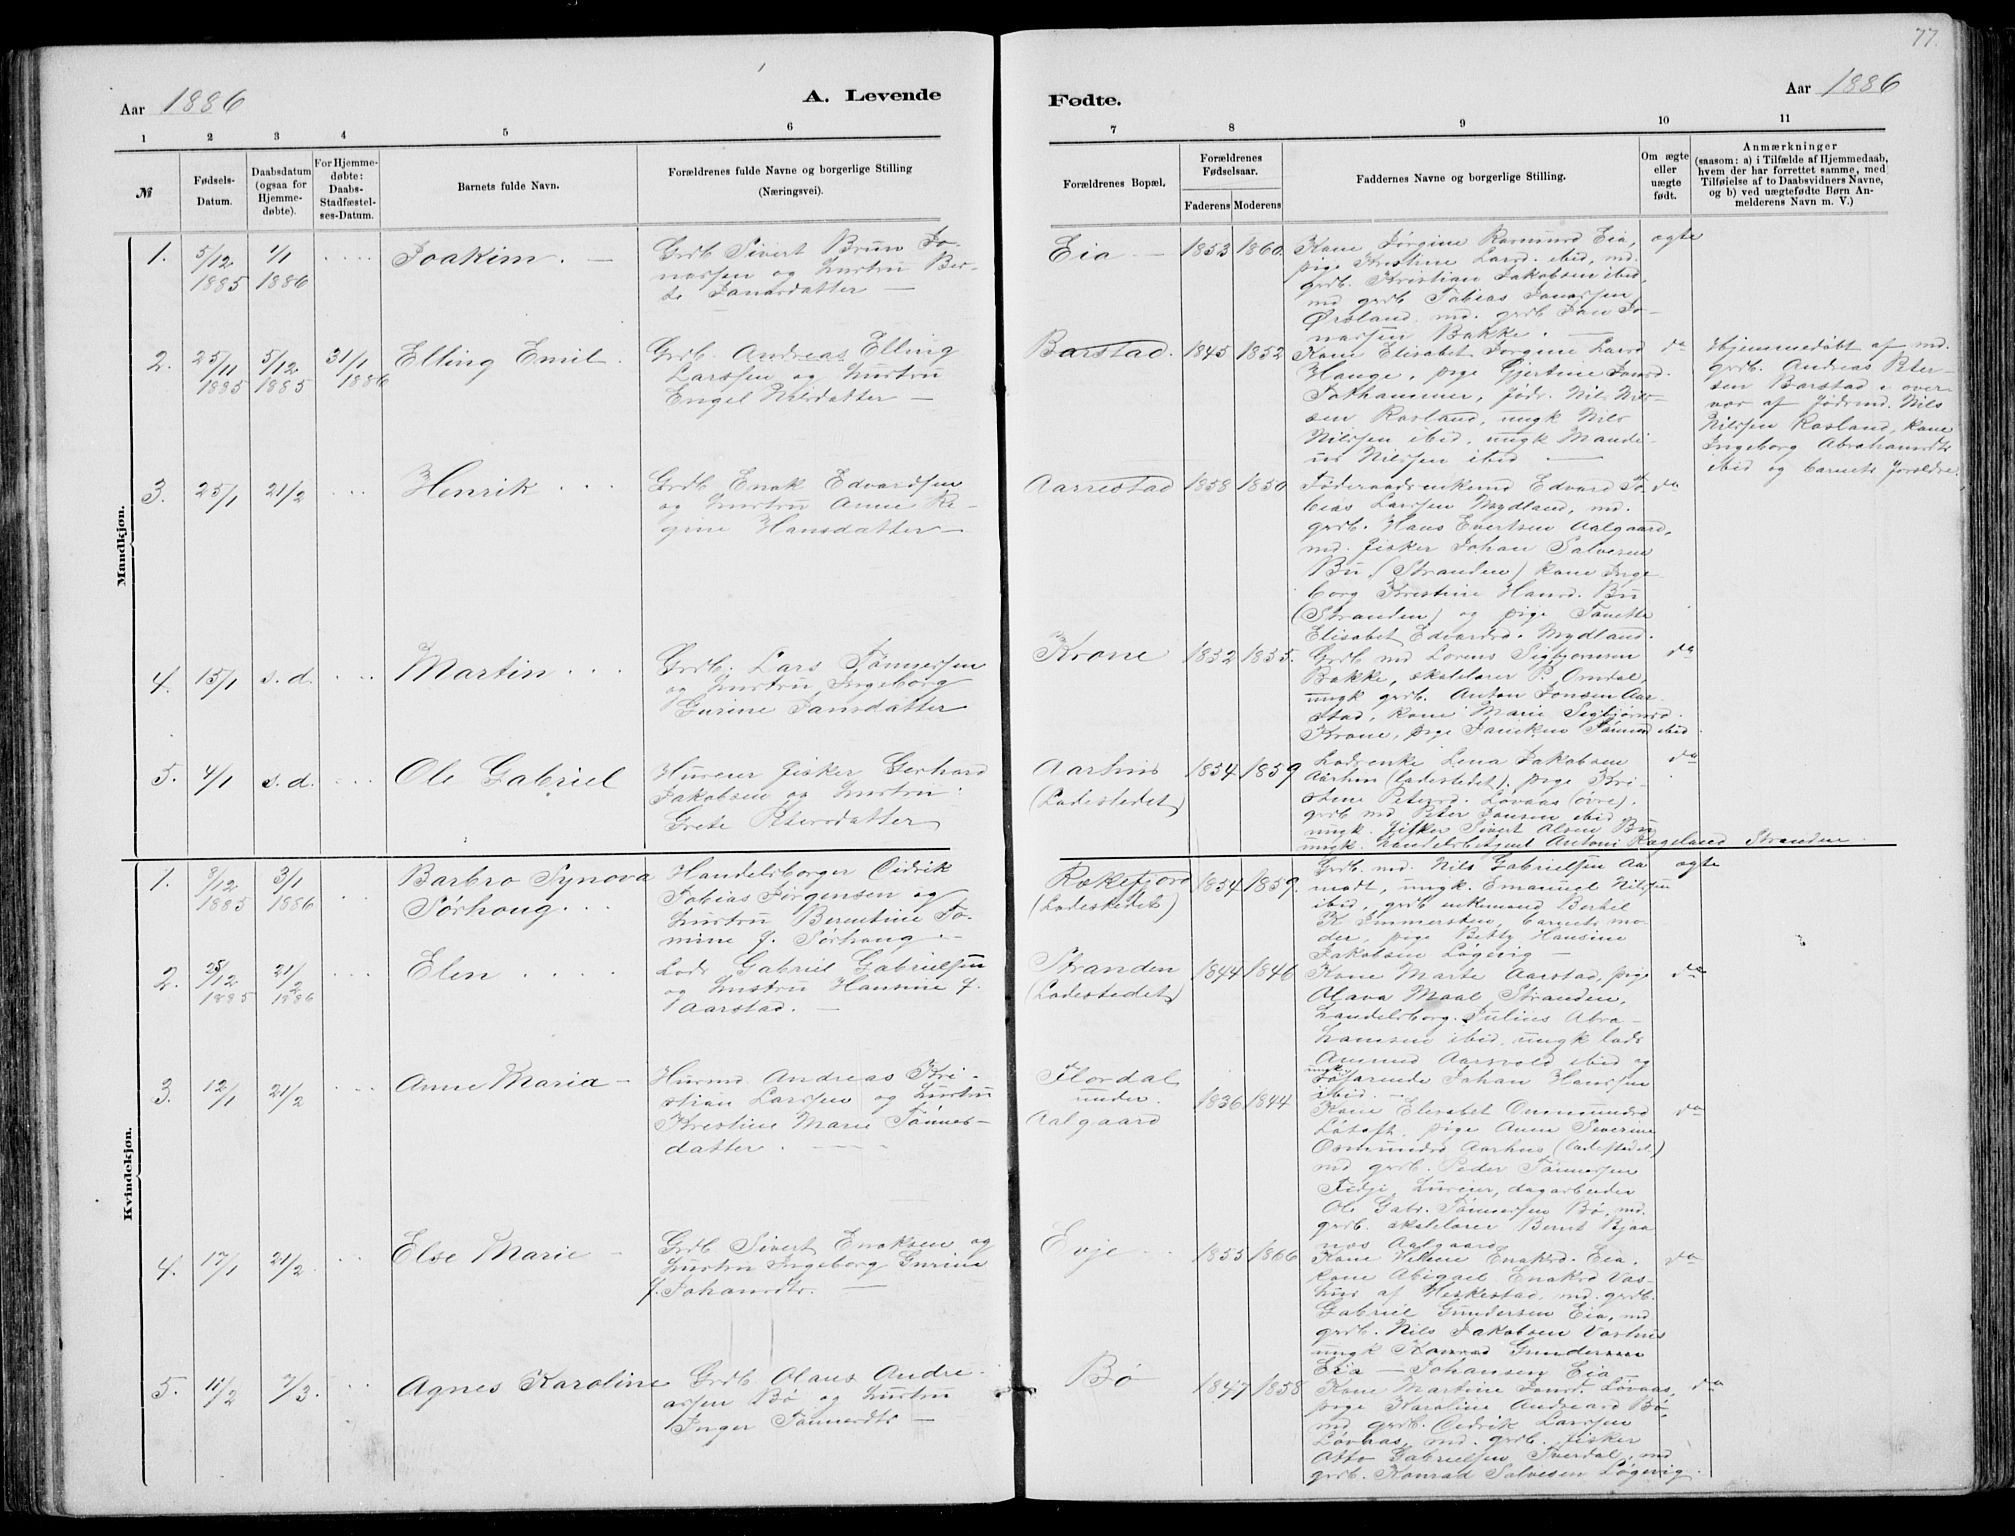 77.
Aar 1886
A. Levende
Fødte.
Aar 1886
1 2 3 4 5 6 7 8 9 10 11
№
Fødsels-
Datum.
Daabsdatum
(ogsaa for
Hjemme-
døbte).
For Hjemme-
døbte:
Daabs-
Stadfæstel-
ses-Datum.
Barnets fulde Navn.
Forældrenes fulde Navne og borgerlige Stilling
(Næringsvei).
Forældrenes Bopæl.
Forældrenes
Fødselsaar.
Faderens Moderens
Faddernes Navne og borgerlige Stilling.
Om ægte
eller
uægte
født.
Anmærkninger
(saasom: a) i Tilfælde af Hjemmedaab,
hvem der har forrettet samme, med
Tilføielse af to Daabsvidners Navne,
og b) ved uægtefødte Børn An-
melderens Navn m. V.)
Mandkjøn.
1. 5/12 1885 1/1 1886 Joakim.
Grdb. Sivert Brun Jo-
nassen og hustru Ber-
te Jonasdatter
Eia 1853 1860
Kone Jørgine Rasmusd Eia,
pige Kristine Larsd. ibid, md.
grdb. Kristian Jakobsen ibid
md grdb Tobias Jonassen
Ørsland, md. grdb Jan Jo-
nassen Bakke.
ægte
2. 25/11 1885 5/12 1885 31/1 1886 Elling Emil.
Grdb. Andreas Elling
Larssen og hustru
Engel Nilsdatter
Barstad. 1845 1852
Kone Elisabet Jorgine Larsd
Hauge, pige Gjertine Jonsd.
Nils Nils-
sen Rosland, ungk Nils
Nilssen ibid, ungk Mandi-
us Nilssen ibid
do
Hjemmedøbt af md.
grdb. Andreas Peter-
sen Barstad i over-
vær af md. Nils
Nilssen Rosland, kone
Ingeborg Abrahamsdtr
ibid og barnets forældre.
3. 25/1 21/2 Henrik
Grdb Enok Edvardsen
og hustru Anne Re-
gine Hansdatter
Aarrestad 1858 1850
Føderaadsenkemd Edvard To-
bias Larssen Mydland, md.
grdb. Hans Evertsen Aalgaard,
md. fisker Johan Salvesen
Bu, (Stranden) kone Inge
borg Kristine Hansd. Bu
(Stranden) og pige Tanette
Elisabet Edvardsd. Mydland.
do
4. 15/1 s. d. Martin
Grdb. Lars Tønnessen
og hustru Ingeborg
Gurine Jansdatter
Krone 1852 1855.
Grdb md Lorens Sigbjørnsen
Bakke, skolelærer P. Omdal,
ungk grdb. Anton Jonsen Aar-
stad, kone Marie Sigbjørnsd.
Krone, pige Janikken Tønnesd ibid
do
5. 4/1 s. d. Ole Gabriel
Huseier fisker Gerhard
Jakobsen og hustru
Grete Petersdatter
Aarhus
(Ladestedet) 1854 1859
Lodsenke Lena Jakobsen
Aarhus (ladestedet), pige Kri-
stine Petersd. Løvaas (øvre).
grdb md Peter Jonsen ibid
ungk. fisker Sivert Olsen Bu
ungk. handelsbetjent Antoni Rageland Stranden.
do
Kvindekjøn.
1. 3/12 1885 3/1 1886 Barbro Synova
Sørhoug
Handelsborger Cidrik
Tobias Jørgensen og
hustru Berentine To-
mine f. Sørhoug
Rækefjord
(Ladestedet) 1854 1859.
Grdb. md. Nils Gabrielsen Aa
modt, ungk. Emanuel Nilssen
ibid, grdb enkemand Bertel
K. Immersten, barnets mo-
der, pige Betty Hansine
Jakobsen Løgevig
ægte
2. 25/12 1885 21/2 1886 Elen
Lods Gabriel Gabrielsen
og hustru Hansine f.
Aarstad.
Stranden
(Ladestedet) 1844 1846
Kone Marte Aarstad, pige
Olava Maal Stranden,
handelsborg. Julius Abra-
hamsen ibid, ungk lods
Amund Aarsvold ibid og
ungk. søfarende Johan Hanssen
ibid.
do
3. 12/1 21/2 Anne Maria
Husmd. Andreas Kri-
stian Larssen og hustru
Kristine Marie Tønnes-
datter.
Flordal
under
Aalgaard 1836 1844
Kone Elisabet Ommundsd
Løtoft, pige Anne Siverine
Osmundsd Aarhus (Ladestedet)
md grdb. Peder Tønnessen
Fidje, huseier, dagarbeider
Ole Gabr. Tønnessen Bø, md.
grdb. skolelærer Bernt Bjaa
næs Aalgaard
do
4. 17/1 21/2 Else Marie
Grdb Sivert Enoksen og
hustru Ingeborg Gurine
f. Johansdtr.
Evje 1855 1866
Kone Helene Enoksd. Eia,
kone Abigael Enoksd Vas-
hus af Heskestad, md. grdb.
Gabriel Gundersen Eia, md
grdb. Nils Jakobsen Vashus
ungk Konrad Gundersen
Eia — Johansen Eia
do
5. 11/2 7/3. Agnes Karoline
Grdb Olaus Andre-
assen Bø og hustru
Inger Tønnesdtr
Bø 1847 1858
Kone Martine Jonsd. Løvaas,
pige Karoline Andreasd Bø,
md grdb. Cidrik Larssen
Løvaas, md. grdb. fisker
Otto Gabrielsen Sverdal, md
grdb. Konrad Salvesen Løgevig.
do